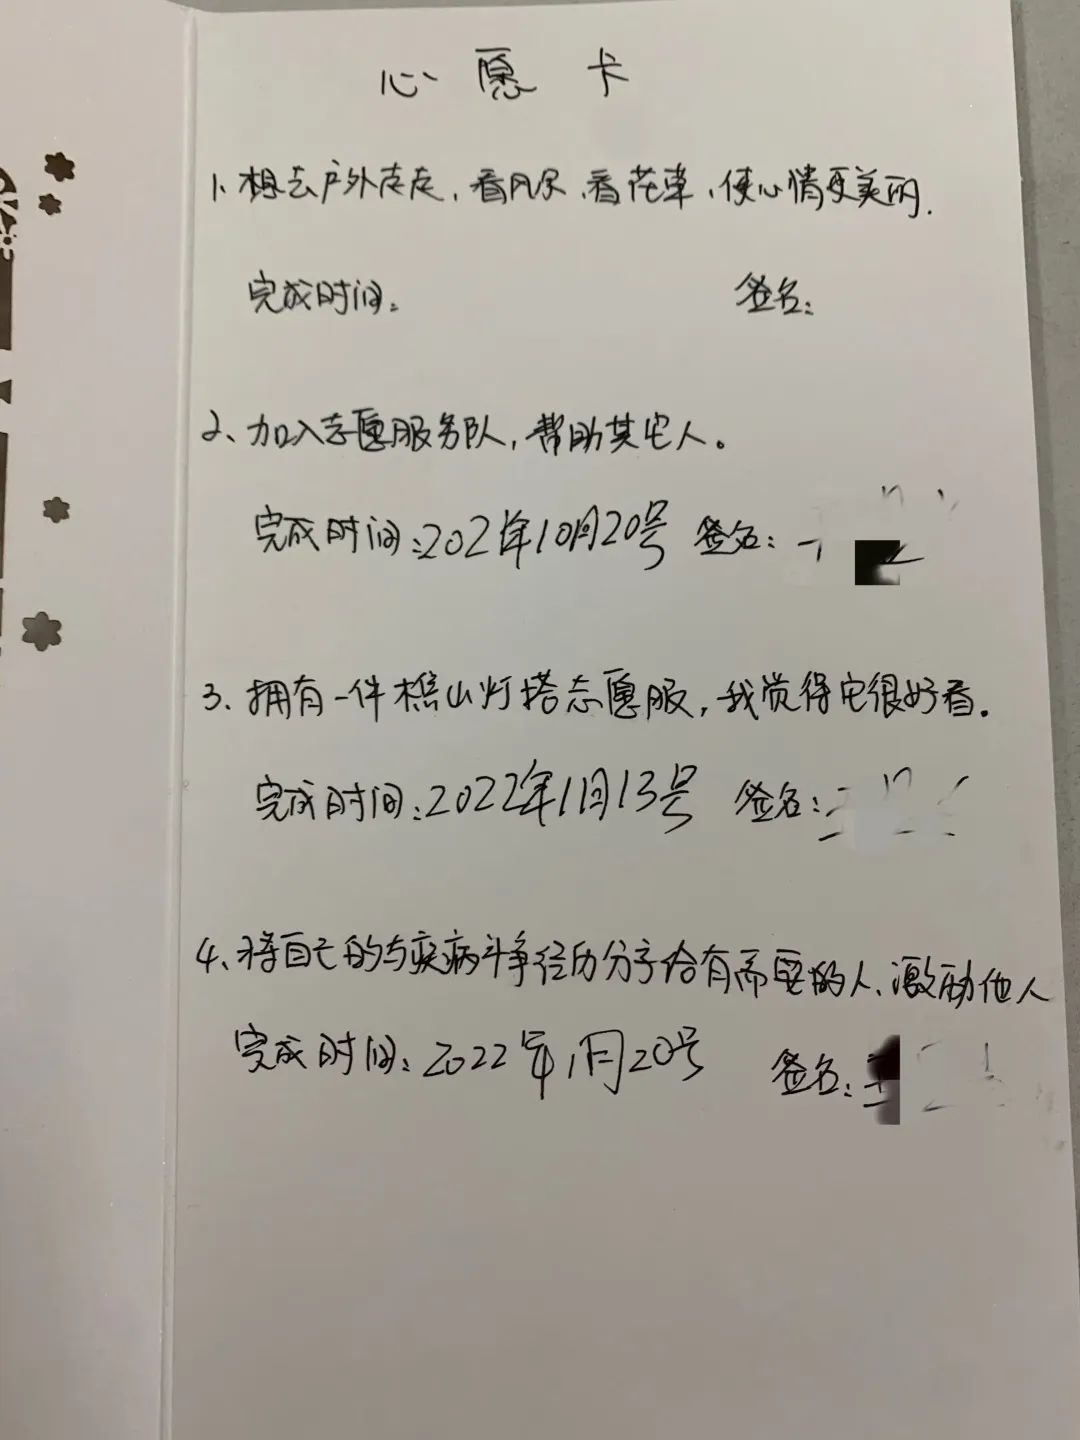 心愿卡
1、想去户外走走，看风景，看花草，使心情更美丽.
完成时间：
签名：
2、加入志愿服务队，帮助其它人。
完成时间：2021年10月20号 签名：
3、拥有一件樵山灯塔志愿服，我觉得它很好看。
完成时间：2022年1月13号 签名：
4、将自己的与疾病斗争经历分享给有需要的人、激励他人
完成时间：2022年1月20号 签名：